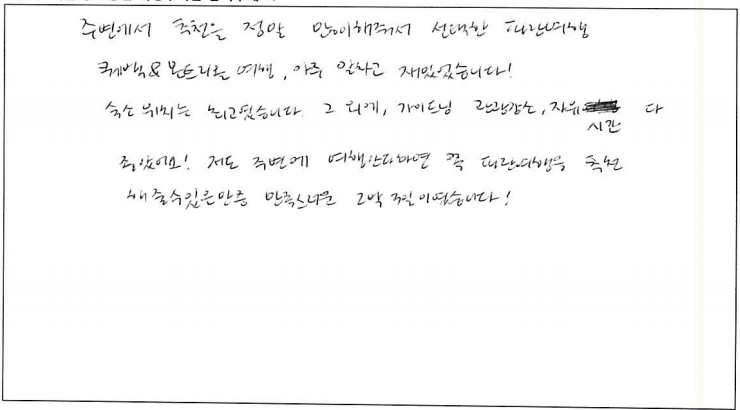 주변에서 추천을 정말 많이해줘서 선택한 파란여행
퀘백&몬트리올 여행, 아주 알차고 재밌었습니다!
숙소 위치는 최고였습니다. 그 외에, 가이드님 관광장소, 자유시간 다
좋았어요! 저도 주변에 여행간다하면 꼭 파란여행을 추천
해줄수있은만큼 만족스러운 2박 3일이였습니다!